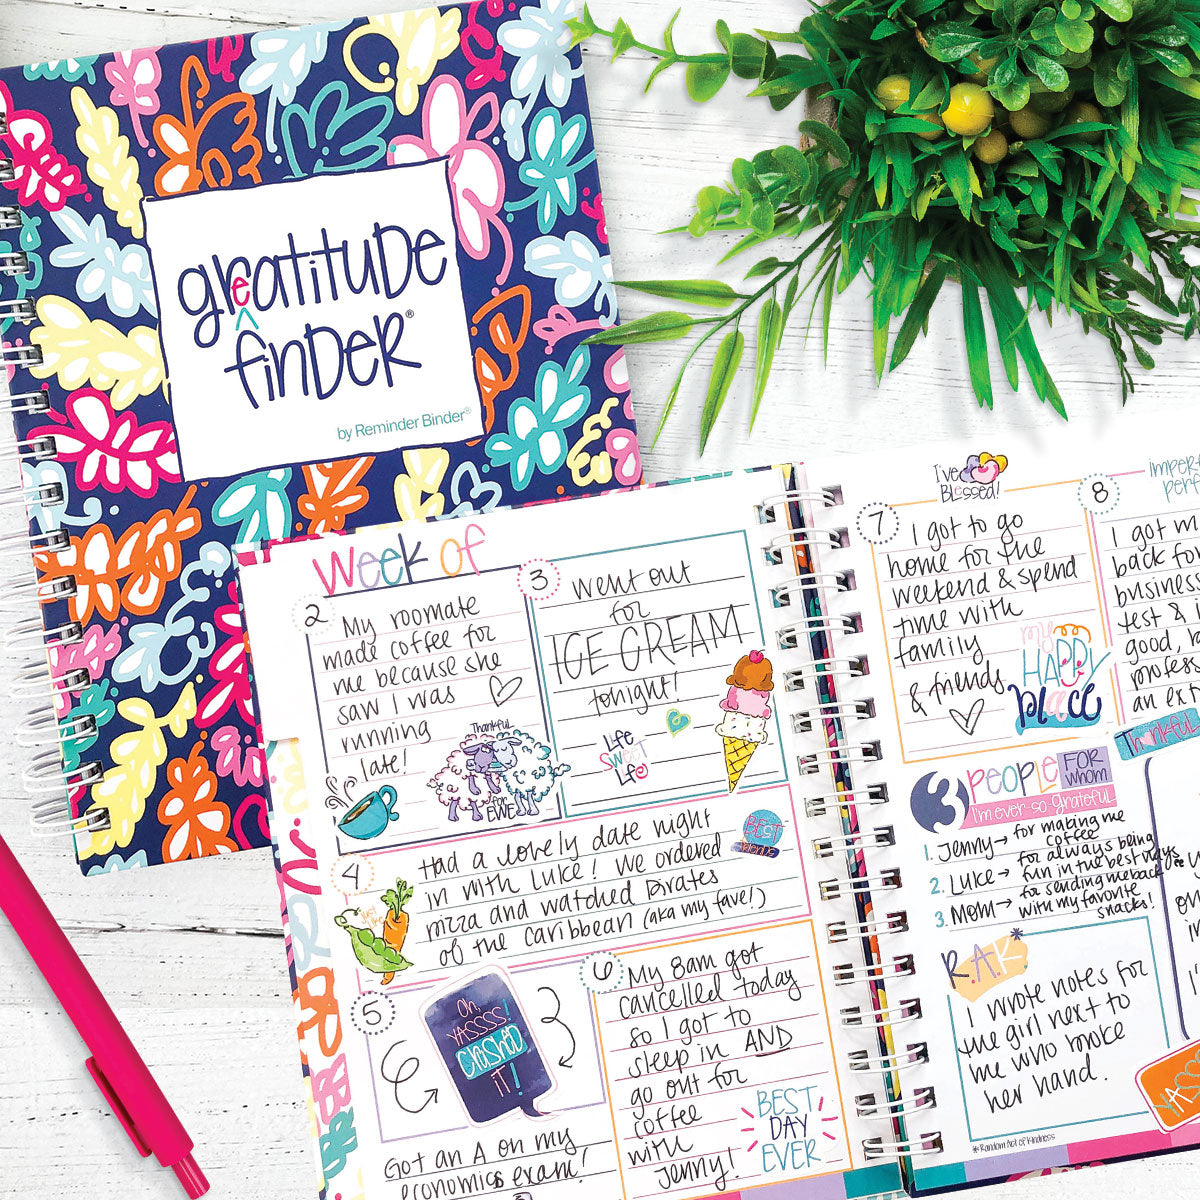 greatitude
finder®
by Reminder Binder®
Week of
2
My roomate
made coffee for
me because she
saw I was
running
late!
Thankful
FOR
EWE
3
went out
for
ICE CREAM
tonight!
Life
Sweet
Life
4
Had a lovely date night
in with Luke! We ordered
pizza and watched Pirates
of the Caribbean (aka my fave!)
BEST
5
Oh,
YASSSS!
Crushed
iT!
Got an A on my
economics exam!
6
My 8am got
cancelled today
so I got to
sleep in AND
go out for
coffee
with
Jenny!
BEST
DAY
EVER
I've
Blessed!
7
I got to go
home for the
weekend & spend
time with
family
& friends
my
HAPPY
place
8
imperf
perf
I got m
back fo
business
test & I
good, n
profess
an ext
Thankful
3 PEOPLE FOR whom
I'm ever-so-grateful
1. Jenny→ for making me
coffee
2. Luke→ for always being
fun in the best ways
3. Mom→ for sending me back
with my favorite
snacks!
R.A.K*
I wrote notes for
the girl next to
me who broke
her hand.
* Random Act of Kindness
YASSSS